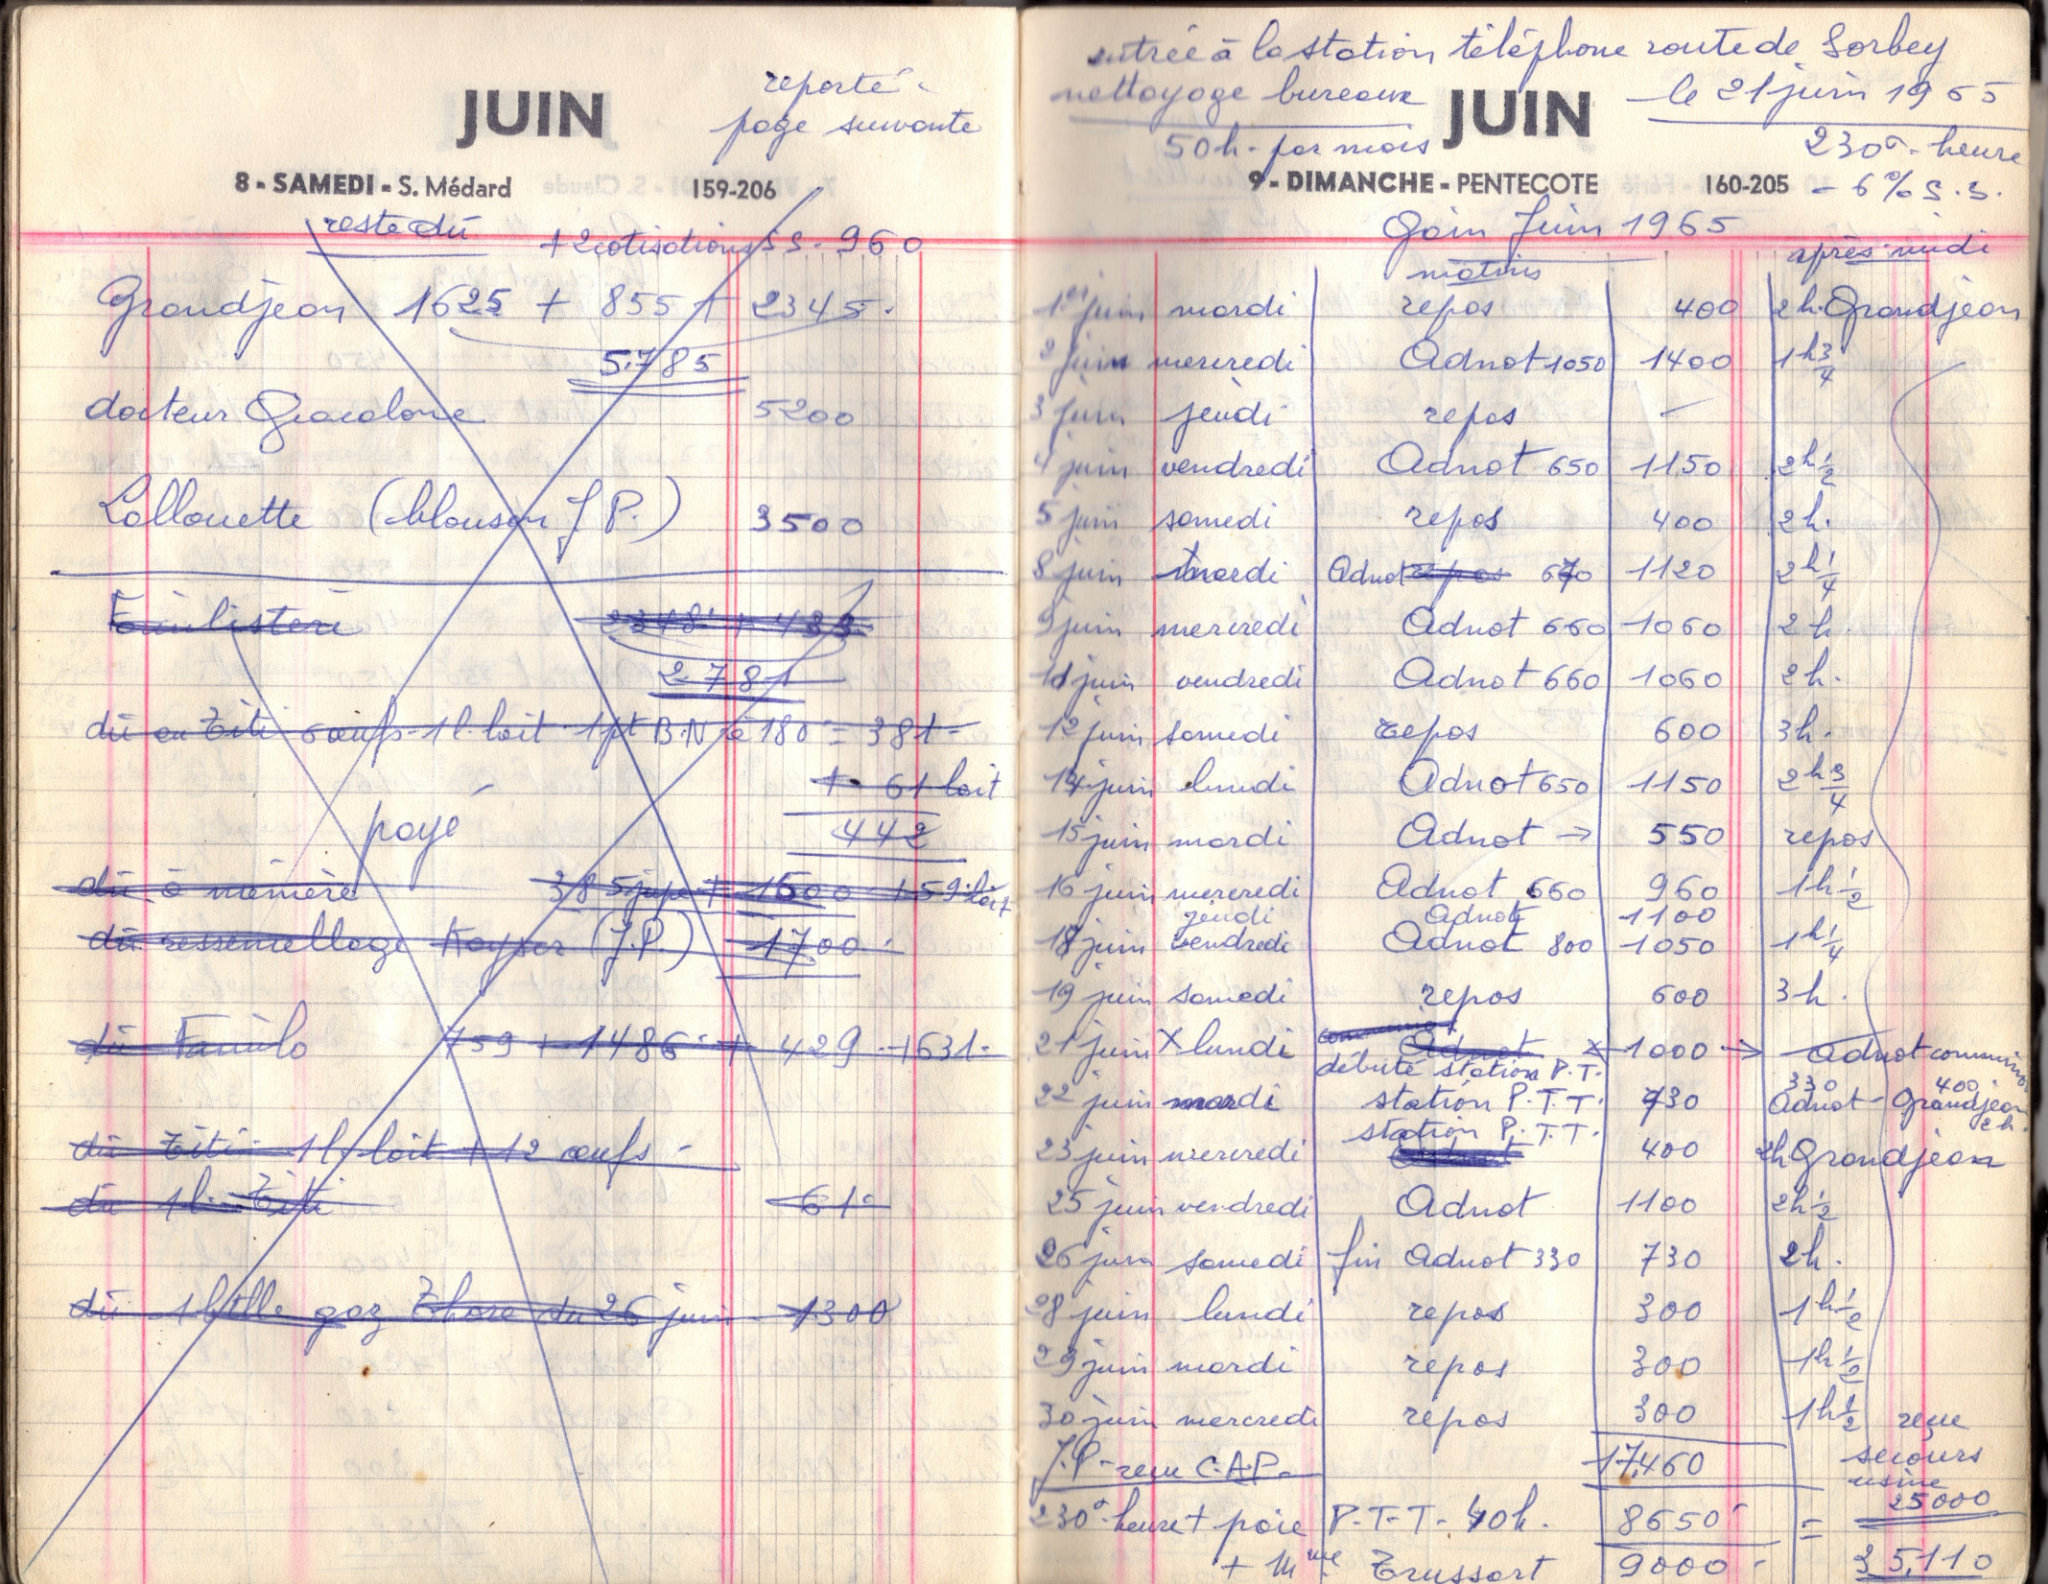 JUIN
reporté
page suivante
8 - SAMEDI - S. Médard 159-206
reste dû
+ 2 cotisations S.S. 960
Grandjean 1625 + 855 + 2345.
5.785
docteur 5200
Lallouette (blouson J P.) 3500
2781
dû au Titi 6 œufs - 1 l. lait 1 pt B.N à 180 = 381
+ 61 lait
442
payé
dû à mémère 385 jupe + 1500 + 59 lait
dû ressemellage Kayser (J.P.) 1700
dû Familo 759 + 1486 + 429 + 631
dû Titi 1 l. lait + 12 œufs
dû 1 l. Titi 61
dû 1 btlle gaz Thore du 26 juin 1300
entrée à la station téléphone route de Sorbey
nettoyage bureaux le 21 juin 1965
JUIN
50h. par mois 230 heure
9 - DIMANCHE - PENTECOTE 160-205 - 6 % S.S.
Gain Juin 1965
matins après-midi
1er juin mardi repos 400 2h. Grandjean
2 juin mercredi Adnot 1050 1400 1h 3/4
3 juin jeudi repos -
4 juin vendredi Adnot 650 1150 2h 1/2
5 juin samedi repos 400 2h.
8 juin mardi Adnot repos 670 1120 2h 1/4
9 juin mercredi Adnot 660 1060 2h.
11 juin vendredi Adnot 660 1060 2h.
12 juin samedi repos 600 3h.
14 juin lundi Adnot 650 1150 2h 3/4
15 juin mardi Adnot → 550 repos
16 juin mercredi Adnot 660 960 1h 1/2
jeudi Adnot 1100
18 juin vendredi Adnot 800 1050 1h 1/4
19 juin samedi repos 600 3h.
21 juin x lundi Adnot x 1000 → Adnot
débuté station P.T.
330 400
22 juin mardi station P.T.T. 730 Adnot - Grandjean
2h.
station P.T.T.
23 juin mercredi Adnot 400 2h Grandjean
25 juin vendredi Adnot 1100 2h 1/2
26 juin samedi fin Adnot 330 730 2h.
28 juin lundi repos 300 1h 1/2
29 juin mardi repos 300 1h 1/2
30 juin mercredi repos 300 1h 1/2
reçu
J.P. reçu C.A.P. 17,460 secours
usine
25000
230 heure + paie P.T.T. 40h. 8650 =
+ Mme Trussart 9000 35,110